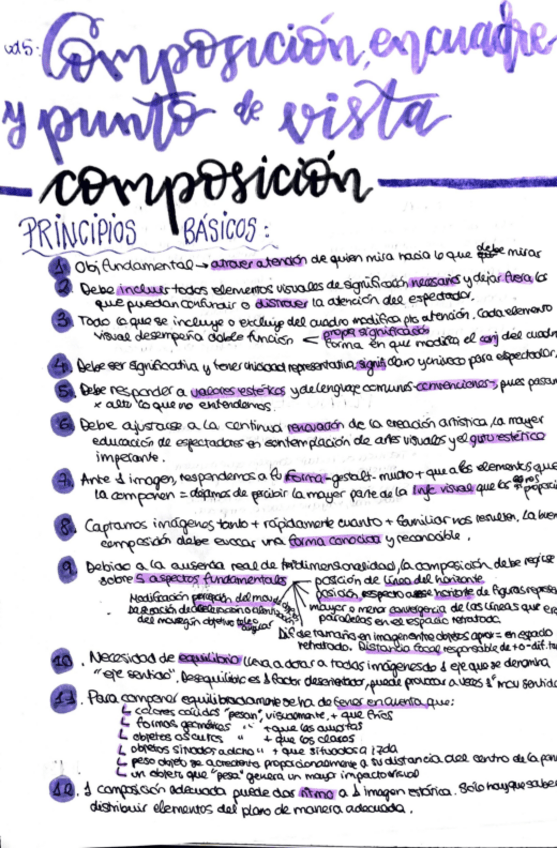 ut5: Composición, encuadre
y punto de vista
composición
PRINCIPIOS BÁSICOS:
1. Obj fundamental → atraer atención de quien mira hacia lo que debe mirar
2. Debe incluir todos elementos visuales de significación necesarios y dejar fuera, los
que puedan confundir o distraer la atención del espectador.
3. Todo lo que se incluye o excluye del cuadro modifica pto atención. Cada elemento
visual desempeña doble función < propio significado
forma en que modifica el conj del cuadro
4. Debe ser significativa y tener unidad representativa, signif claro y unívoco para espectador.
5. Debe responder a valores estéticos y de lenguaje comunes-convenciones-, pues pasar
x alto lo que no entendemos.
6. Debe ajustarse a la continua renovación de la creación artística, la mayor
educación de espectadores en contemplación de artes visuales y el gusto estético
imperante.
7. Ante 1 imagen, respondemos a su forma-gestalt- mucho + que a los elementos que
la componen = dejamos de percibir la mayor parte de la info visual que los
8. Captamos imágenes tanto + rápidamente cuanto + familiar nos resulten, la buena
composición debe evocar una forma conocida y reconocible.
9. Debido a la ausencia real de tridimensionalidad, la composición debe regirse
sobre 5 aspectos fundamentales posición de línea del horizonte
Modificación percepción del mov posición respecto a ese horizonte de figuras repres
mayor o menor convergencia de las líneas que
del mov según objetivo tele o angular paralelas en el espacio retratado.
Dif de tamaño en imagen entre objetos aprox = en espacio
retratado. Distancia focal responsable de + o - dif. ta
10. Necesidad de equilibrio lleva a dotar a todas imágenes de 1 eje que se denomina
"eje sentido". Desequilibrio es 1 factor desorientador, puede provocar a veces 1 mov sentido
11. Para componer equilibradamente se ha de tener en cuenta que:
colores cálidos "pesan", visualmente, + que fríos
formas geométricas " + que las
objetos oscuros " + que los claros
objetos situados a dcha " + que situados a izda
peso objeto se acrecienta proporcionalmente a su distancia del centro de la pan
un objeto que "pesa" genera un mayor impacto visual
12. 1 composición adecuada puede dar ritmo a 1 imagen estática. Solo hay que saber
distribuir elementos del plano de manera adecuada.